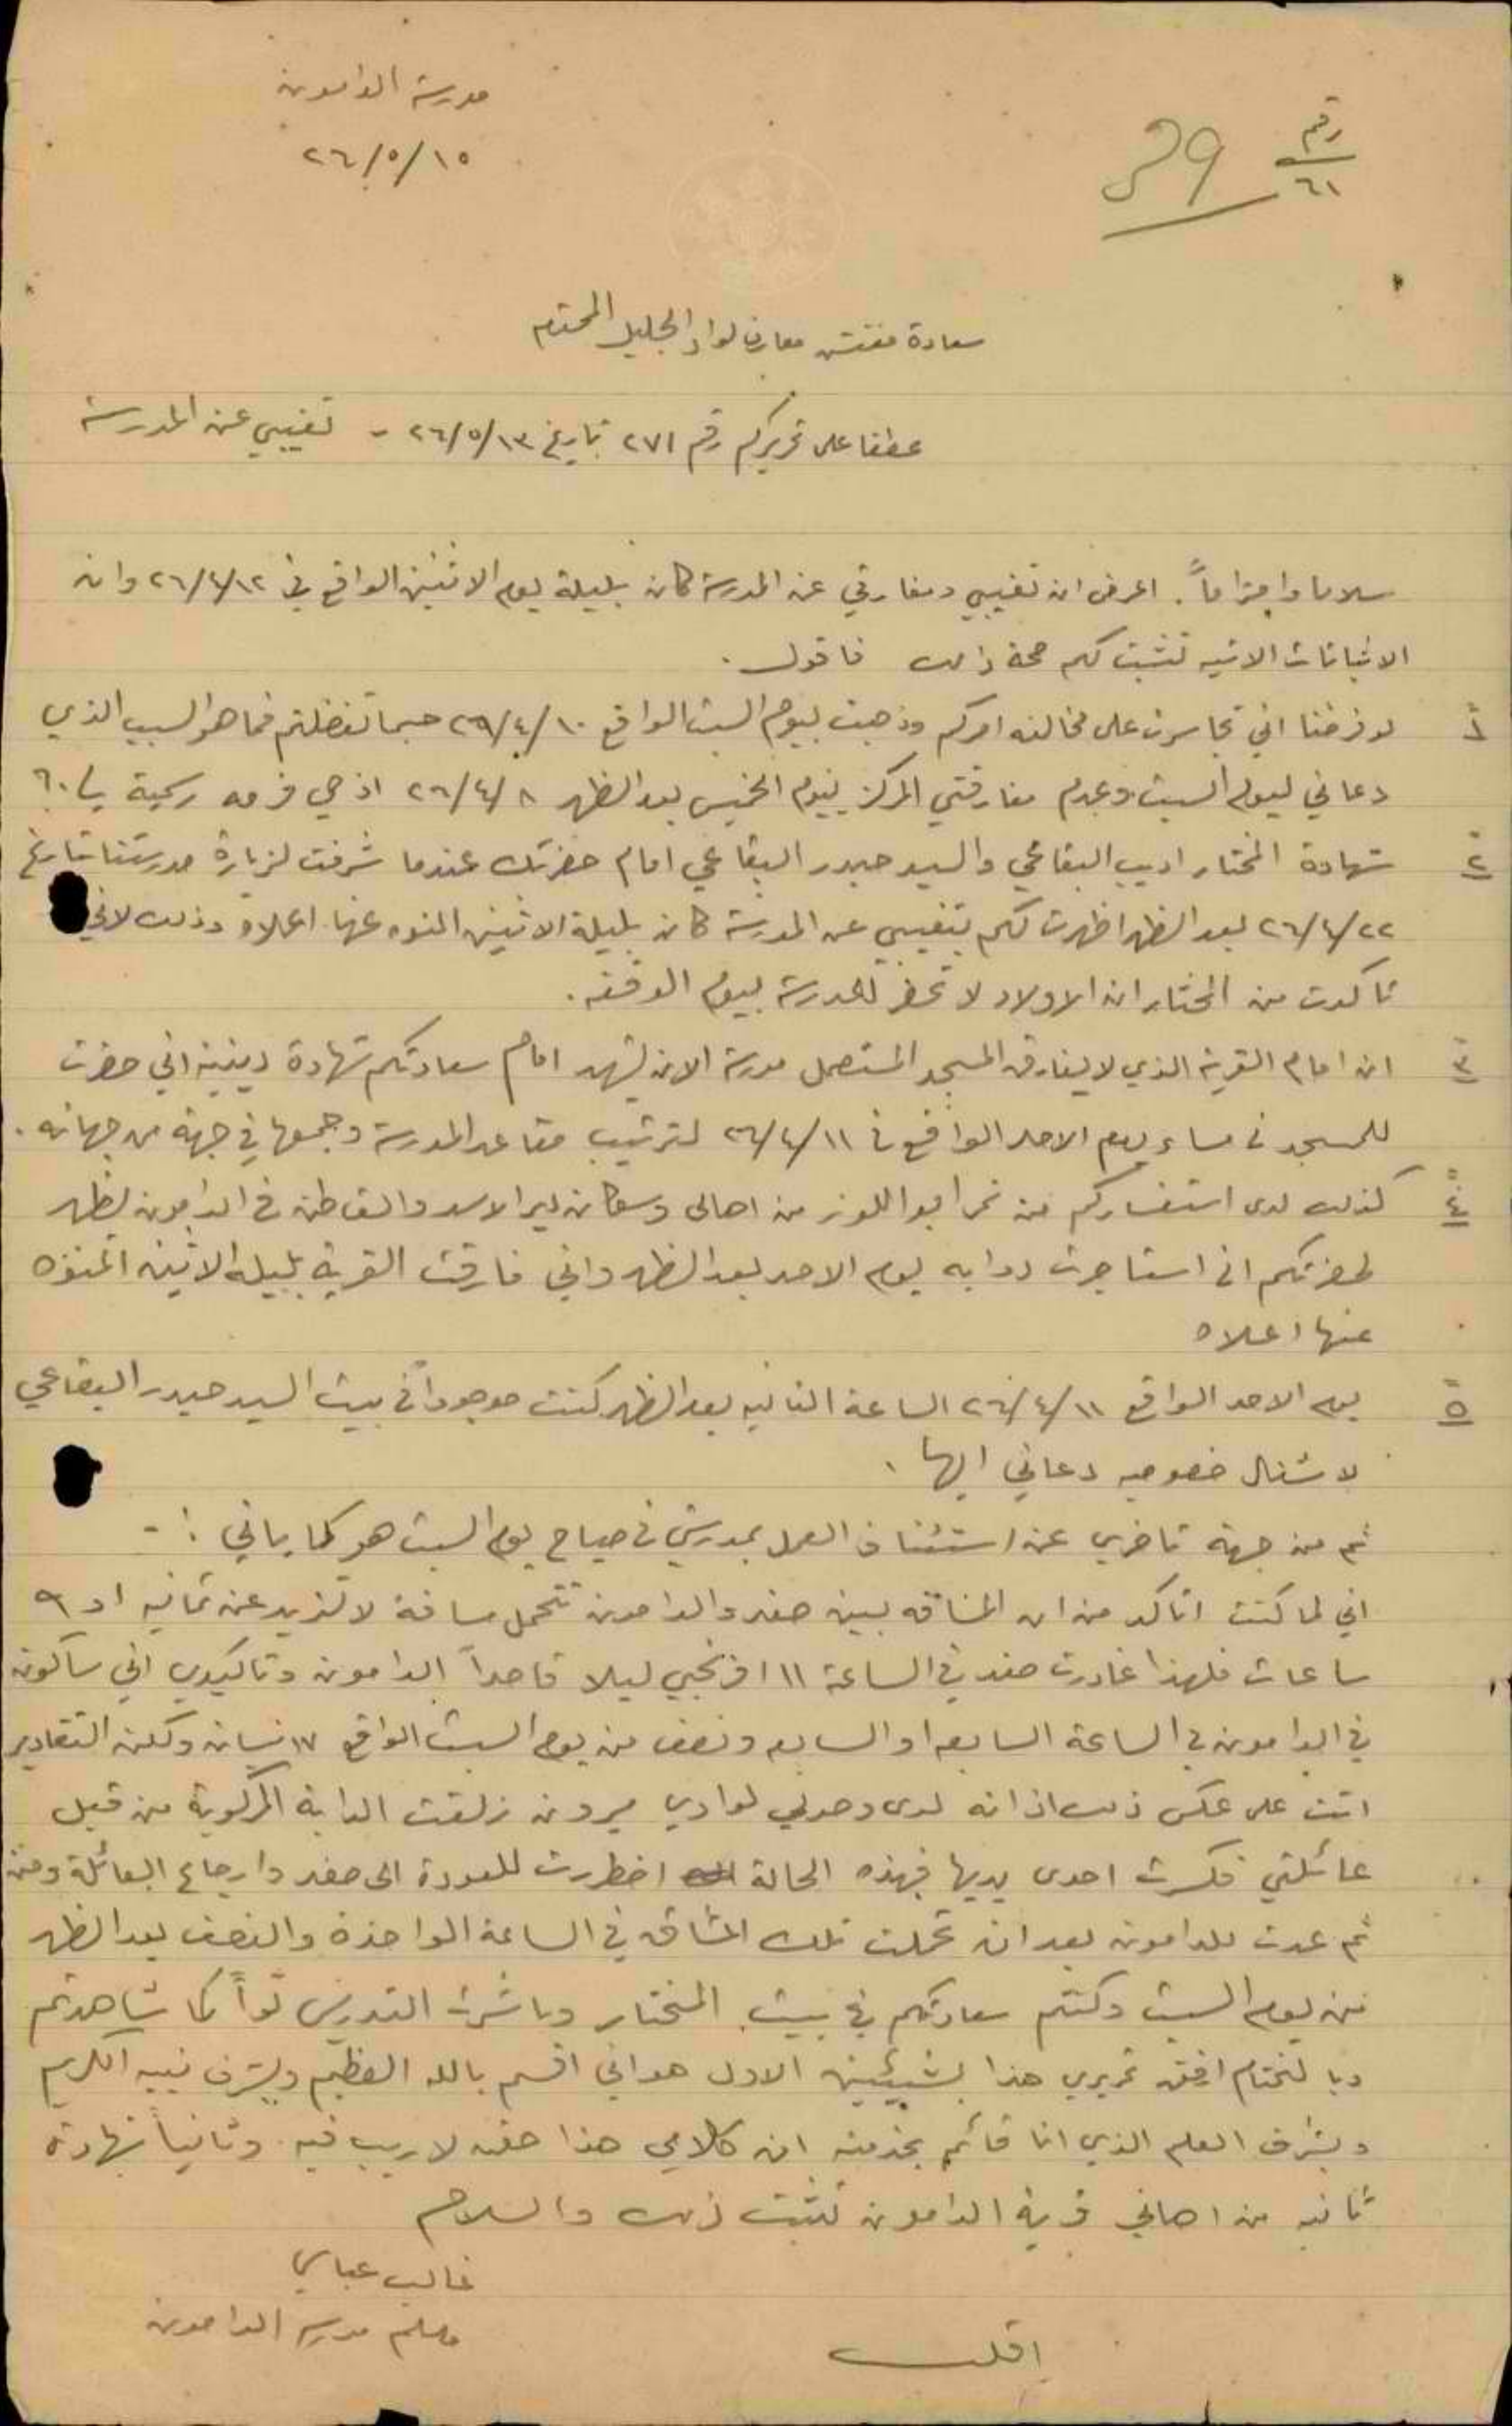 مدرسة الدامون
١٥/٥/٢٦
رقم
٦١
29
سعادة مفتش معارف لواء الجليل المحترم
عطفا على تحريركم رقم ٢٧١ تاريخ ١٣/٥/٢٦ - تغيبي عن المدرسة
سلاما واحتراماً. اعرض ان تغيبي ومفارقتي عن المدرسة كان بليلة يوم الاثنين الواقع في ١٢/٤/٢٦ وان
الاثباتات الاتيه تثبت لكم صحة ذلك فاقول.
١ لو فرضنا اني تجاسرت على مخالفة امركم وذهبت بيوم السبت الواقع ١٠/٤/٢٦ حسبما تفضلتم فما هو السبب الذي
دعاني ليوم السبت وعدم مفارقتي المركز بيوم الخميس بعد الظهر ٨/٤/٢٦ اذ هي فرصه رسمية
٢ شهادة المختار اديب البقاعي والسيد حيدر البقاعي امام حضرتك عندما شرفت لزيارة مدرستنا بتاريخ
٢٢/٤/٢٦ بعد الظهر اظهرت لكم بتغيبي عن المدرسة كان بليلة الاثنين المنوه عنها اعلاه وذلك لاني
تاكدت من المختار ان الاولاد لا تحضر للمدرسة بيوم الوقفه.
٣ ان امام القرية الذي لا يفارق المسجد المستعمل مدرسة الان يشهد امام سعادتكم شهادة دينية اني حضرت
للمسجد في مساء يوم الاحد الواقع في ١١/٤/٢٦ لترتيب مقاعد المدرسة وجمعها في جهة من جهاته.
٤ كذلك لدى استفساركم من نمر ابو اللوز من اهالي وسكان دير الاسد والقاطن في الدامون يظهر
لحضرتكم اني استاجرت دوابه يوم الاحد بعد الظهر واني فارقت القرية بليلة الاثنين المنوه
عنها اعلاه
٥ يوم الاحد الواقع ١١/٤/٢٦ الساعة الثانيه بعد الظهر كنت موجوداً في بيت السيد حيدر البقاعي
لاشغال خصوصيه دعاني اليها.
ثم من جهة تاخري عن استئناف العمل بمدرستي في صباح يوم السبت هو كما ياتي :-
اني لما كنت اتاكد من ان المسافه بين صفد والدامون تتحمل مسافة لا تزيد عن ثمانيه او ٩
ساعات فلهذا غادرت صفد في الساعة ١١ افرنجي ليلا قاصداً الدامون وتاكيدي اني ساكون
في الدامون في الساعة السابعه او السابعه ونصف من يوم السبت الواقع ١٧ نيسان ولكن التقادير
اتت على عكس ذلك اذ انه لدى وصولي لوادي ميرون زلقت الدابة المركوبة من قبل
عائلتي فكسرت احدى يديها فبهذه الحالة اضطررت للعودة الى صفد وارجاع العائلة ومن
ثم عدت للدامون بعد ان تحملت تلك المشاق في الساعة الواحدة والنصف بعد الظهر
من يوم السبت وكنتم سعادتكم في بيت المختار وباشرت التدريس تواً كما شاهدتم
وبالختام ارفق تحريري هذا بشيئين الاول هو اني اقسم بالله العظيم وبشرف نبيه الكريم
وبشرف العلم الذي انا قائم بخدمته ان كلامي هذا حق لا ريب فيه. وثانياً شهادة
ثانيه من اهالي قرية الدامون تثبت ذلك والسلام
غالب عباسي
معلم مدرسة الدامون
اقلب